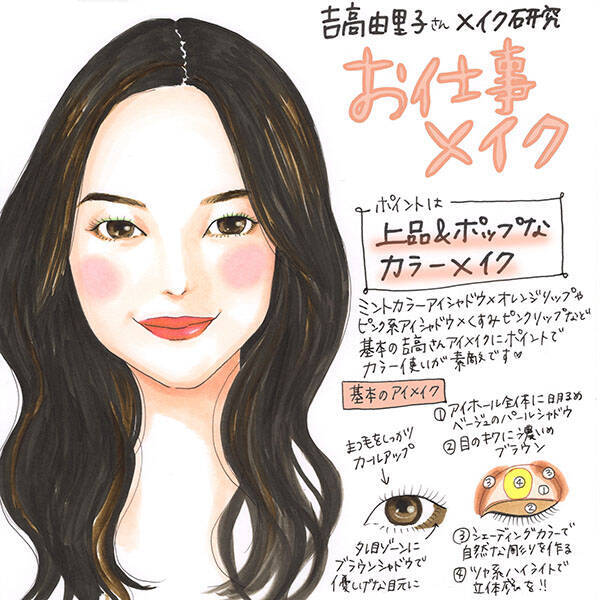 吉高由里子さん メイク研究
お仕事
メイク
ポイントは
上品&ポップな
カラーメイク
ミントカラーアイシャドウ×オレンジリップや
ピンク系アイシャドウ×くすみピンクリップなど
基本の吉高さんアイメイクにポイントで
カラー使いが素敵です♡
基本のアイメイク
①アイホール全体に明るめ
ベージュのパールシャドウ
②目のキワに濃いめ
ブラウン
まつ毛をしっかり
カールアップ
タレ目ゾーンに
ブラウンシャドウで
優しげな目元に
③ ④ ③
①
②
③シェーディングカラーで
自然な彫りを作る
④ツヤ系ハイライトで
立体感を!!